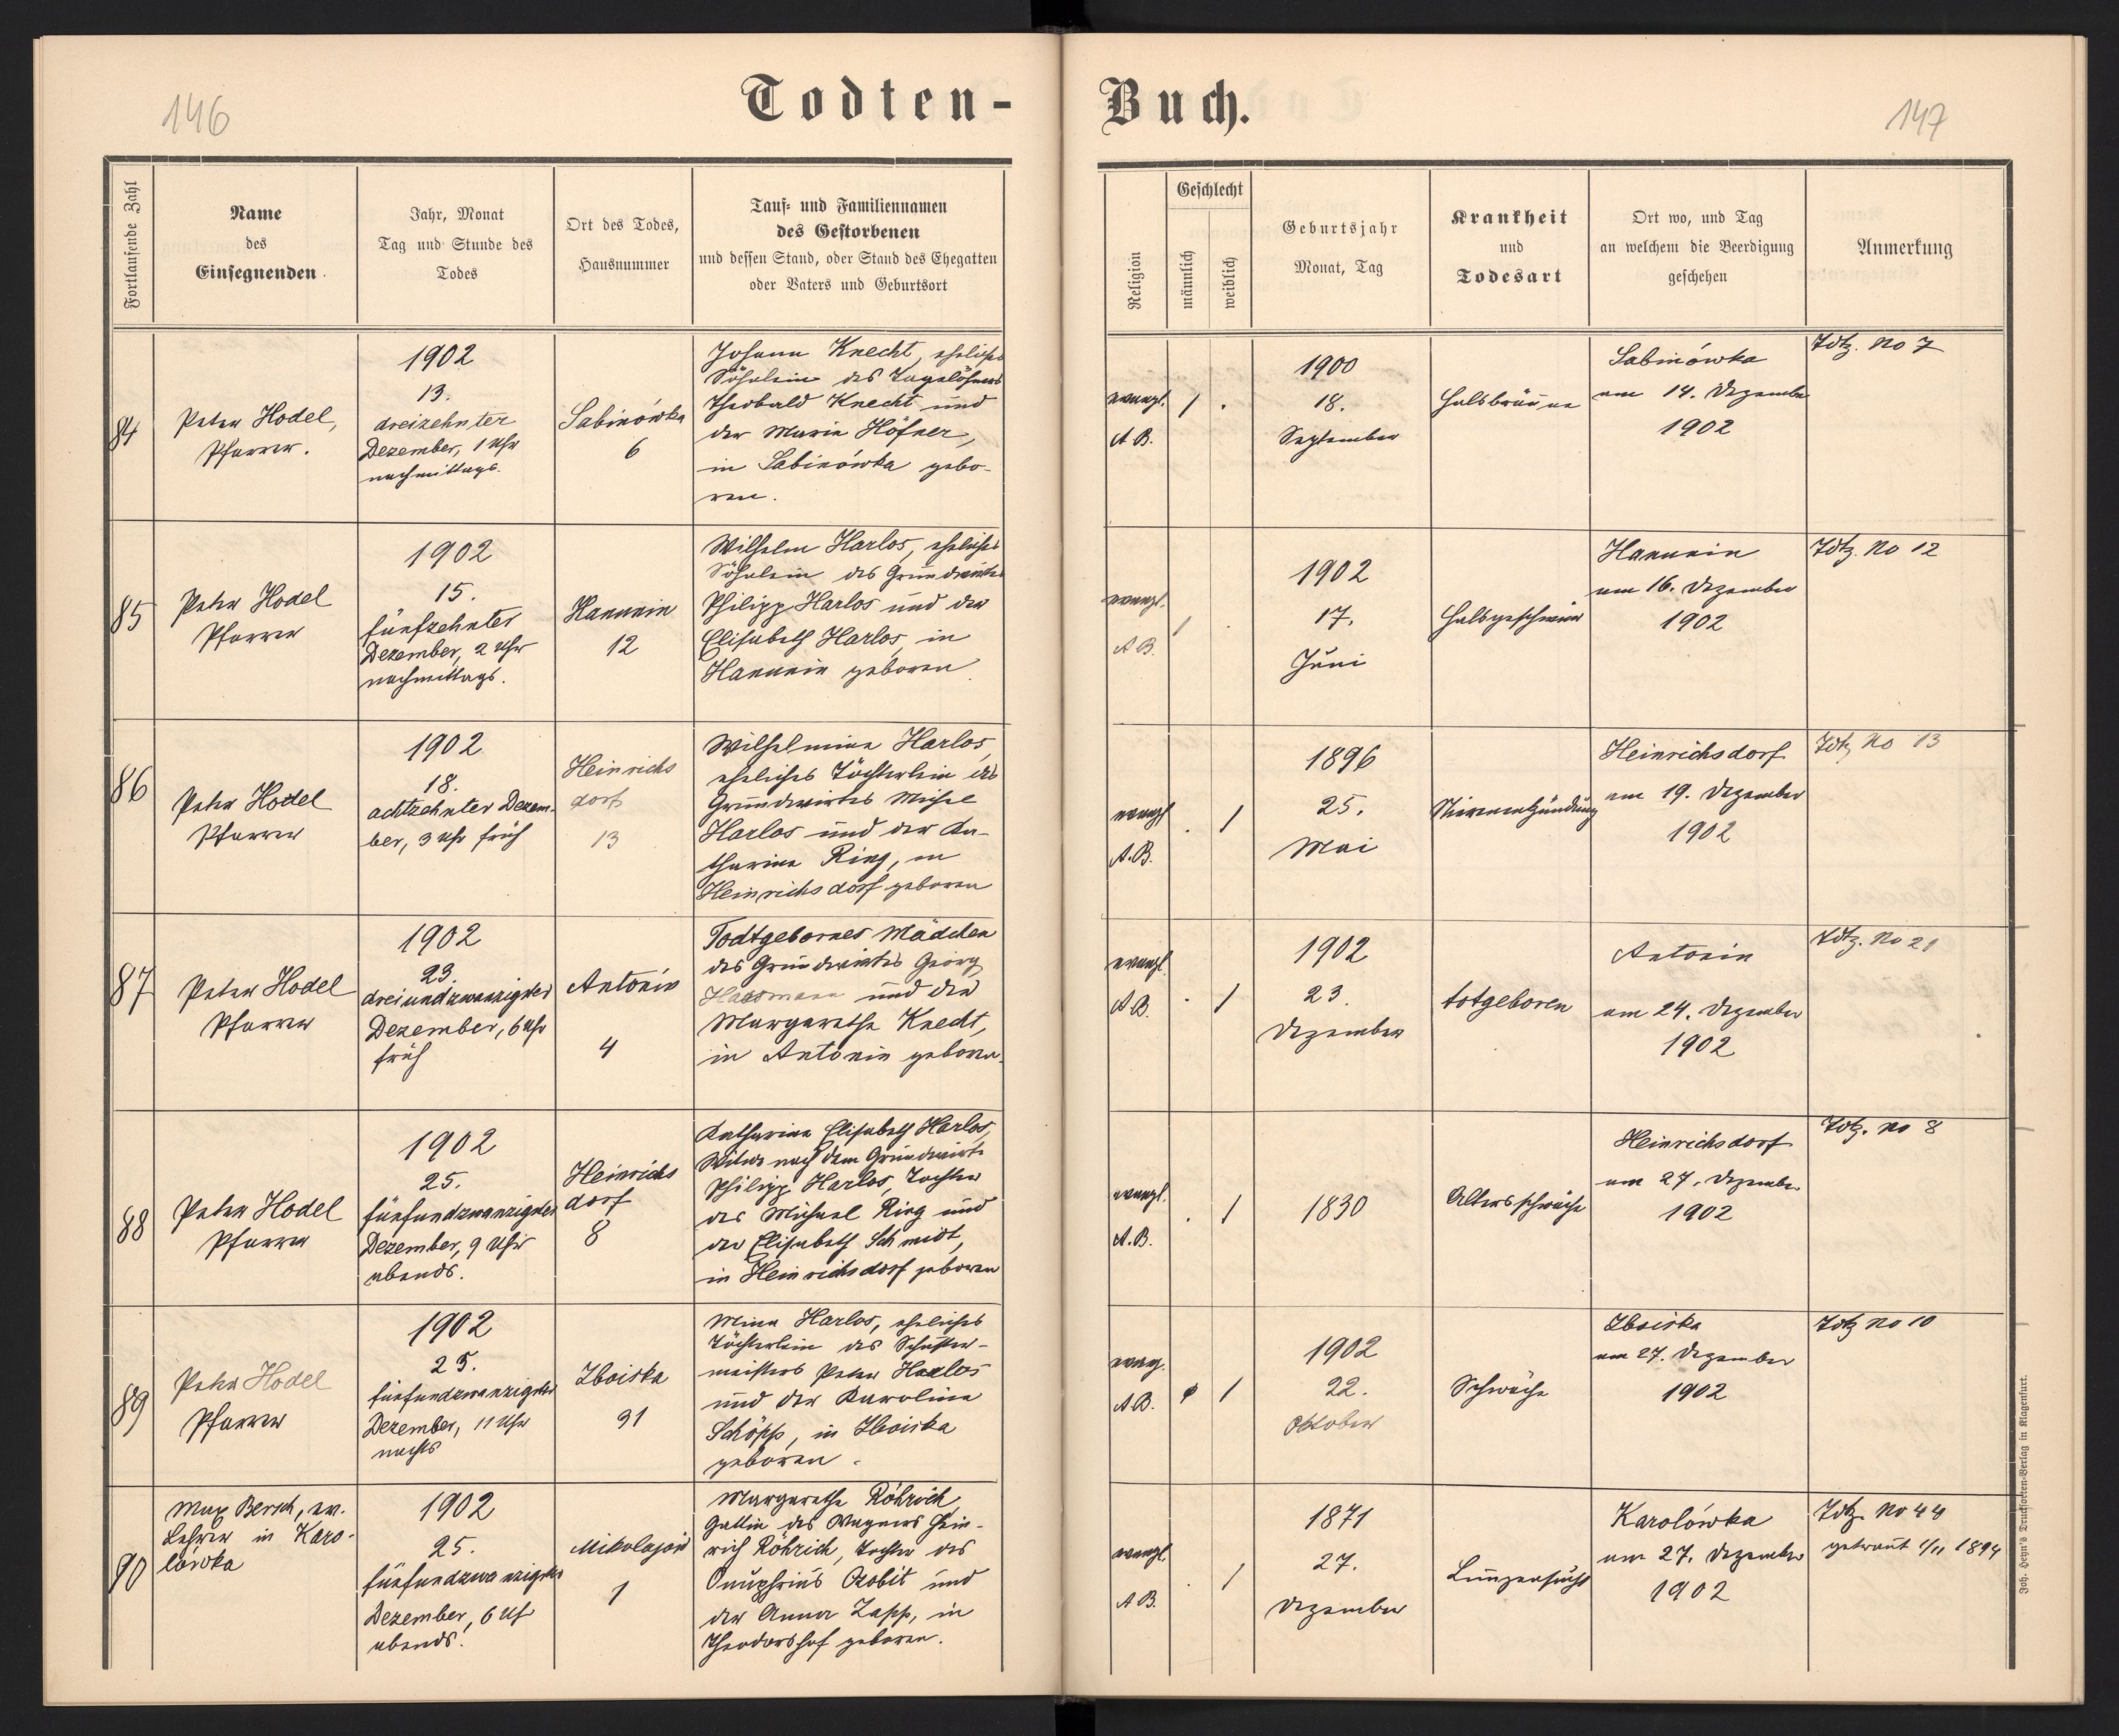 146
Todten-
Buch.
147
Fortlaufende Zahl
Name
des
Einsegnenden.
Jahr, Monat
Tag und Stunde des
Todes
Ort des Todes,
Hausnummer
Tauf- und Familiennamen
des Gestorbenen
und dessen Stand, oder Stand des Ehegatten
oder Vaters und Geburtsort
Religion
Geschlecht
männlich
weiblich
Geburtsjahr
Monat, Tag
Krankheit
und
Todesart
Ort wo, und Tag
an welchem die Beerdigung
geschehen
Anmerkung
84
Peter Hodel,
Pfarrer.
1902
13.
dreizehnter
Dezember, 1 Uhr
nachmittags.
Sabinówka
6
Johann Knecht, eheliches
Söhnlein des Tagelöhners
Theobald Knecht und
der Maria Höfner,
in Sabinówka gebo-
ren.
evangl.
A.B.
1 .
1900
18.
September
Halsbräune
Sabinówka
am 14. Dezember
1902
Tdtz. No 7
85
Peter Hodel
Pfarrer
1902
15.
fünfzehnter
Dezember, 2 Uhr
nachmittags.
Hanunin
12
Wilhelm Harlos, eheliches
Söhnlein des Grundwirtes
Philipp Harlos und der
Elisabeth Harlos, in
Hanunin geboren
evangl.
A.B.
1 .
1902
17.
Juni
Halsgeschwür
Hanunin
am 16. Dezember
1902
Tdtz. No 12
86
Peter Hodel
Pfarrer
1902
18.
achtzehnter Dezem-
ber, 3 Uhr früh
Heinrichs
dorf
13
Wilhelmina Harlos,
eheliches Töchterlein des
Grundwirtes Michael
Harlos und der Ka-
tharina Ring, in
Heinrichsdorf geboren
evangl
A.B.
. 1
1896
25.
Mai
Nierenentzündung
Heinrichsdorf
am 19. Dezember
1902
Tdtz No 13
87
Peter Hodel
Pfarrer
1902
23.
dreiundzwanzigster
Dezember, 6 Uhr
früh
Antonin
4
Todtgebornes Mädchen
des Grundwirtes Georg
und der
Margarethe Knecht,
in Antonin geboren.
evangl.
A.B.
. 1
1902
23.
Dezember
totgeboren
Antonin
am 24. Dezember
1902
Tdtz. No 21
88
Peter Hodel
Pfarrer
1902
25.
fünfundzwanzigster
Dezember, 9 Uhr
abends.
Heinrichs
dorf
8
Katharina Elisabeth Harlos,
Witwe nach dem Grundwirte
Philipp Harlos, Tochter
des Michael Ring und
der Elisabeth Schmidt,
in Heinrichsdorf geboren
evangl.
A.B.
. 1
1830
Altersschwäche
Heinrichsdorf
am 27. Dezember
1902
Tdtz. No 8
89
Peter Hodel
Pfarrer
1902
25.
fünfundzwanzigster
Dezember, 11 Uhr
nachts
Zboiska
91
Mina Harlos, eheliches
Töchterlein des Schuster-
meisters Peter Harlos
und der Karolina
Schöpp, in Zboiska
geboren.
evang.
A.B.
1
1902
22.
Oktober
Schwäche
Zboiska
am 27. Dezember
1902
Tdtz No 10
90
Max Bersch, ev.
Lehrer in Karo-
lówka
1902
25.
fünfundzwanzigster
Dezember, 6 Uhr
abends.
Mikolajów
1
Margarethe Röhrich,
Gattin des Wagners Hein-
rich Röhrich, Tochter des
Onuphrius Ozobit und
der Anna Zapp, in
Theodorshof geboren.
evangl.
A.B.
. 1
1871
27.
Dezember
Lungensucht
Karolówka
am 27. Dezember
1902
Tdtz No 44
getraut 1/11 1894
Joh. Heyn's Drucksorten-Verlag in Klagenfurt.